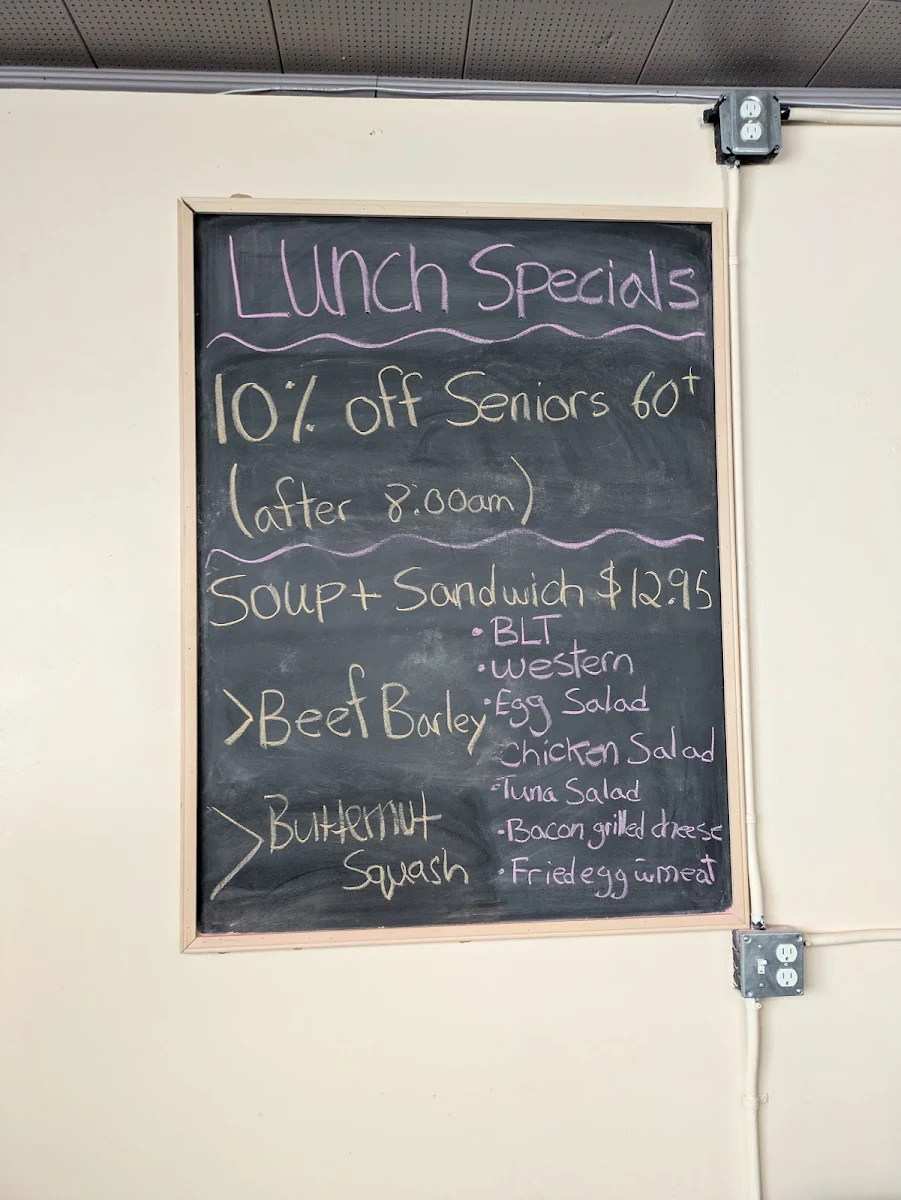 Lunch Specials
10% off Seniors 60+
(after 8:00am)
Soup + Sandwich $12.95
• BLT
• Western
• Egg Salad
Chicken Salad
• Tuna Salad
• Bacon grilled cheese
• Fried egg w meat
> Beef Barley
> Butternut
Squash